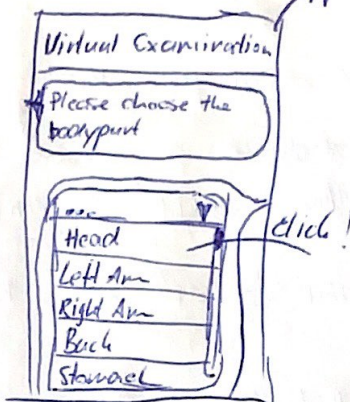 Virtual Examination
Please choose the
bodypart
...
Head
click!
Left Arm
Right Arm
Back
Stomach